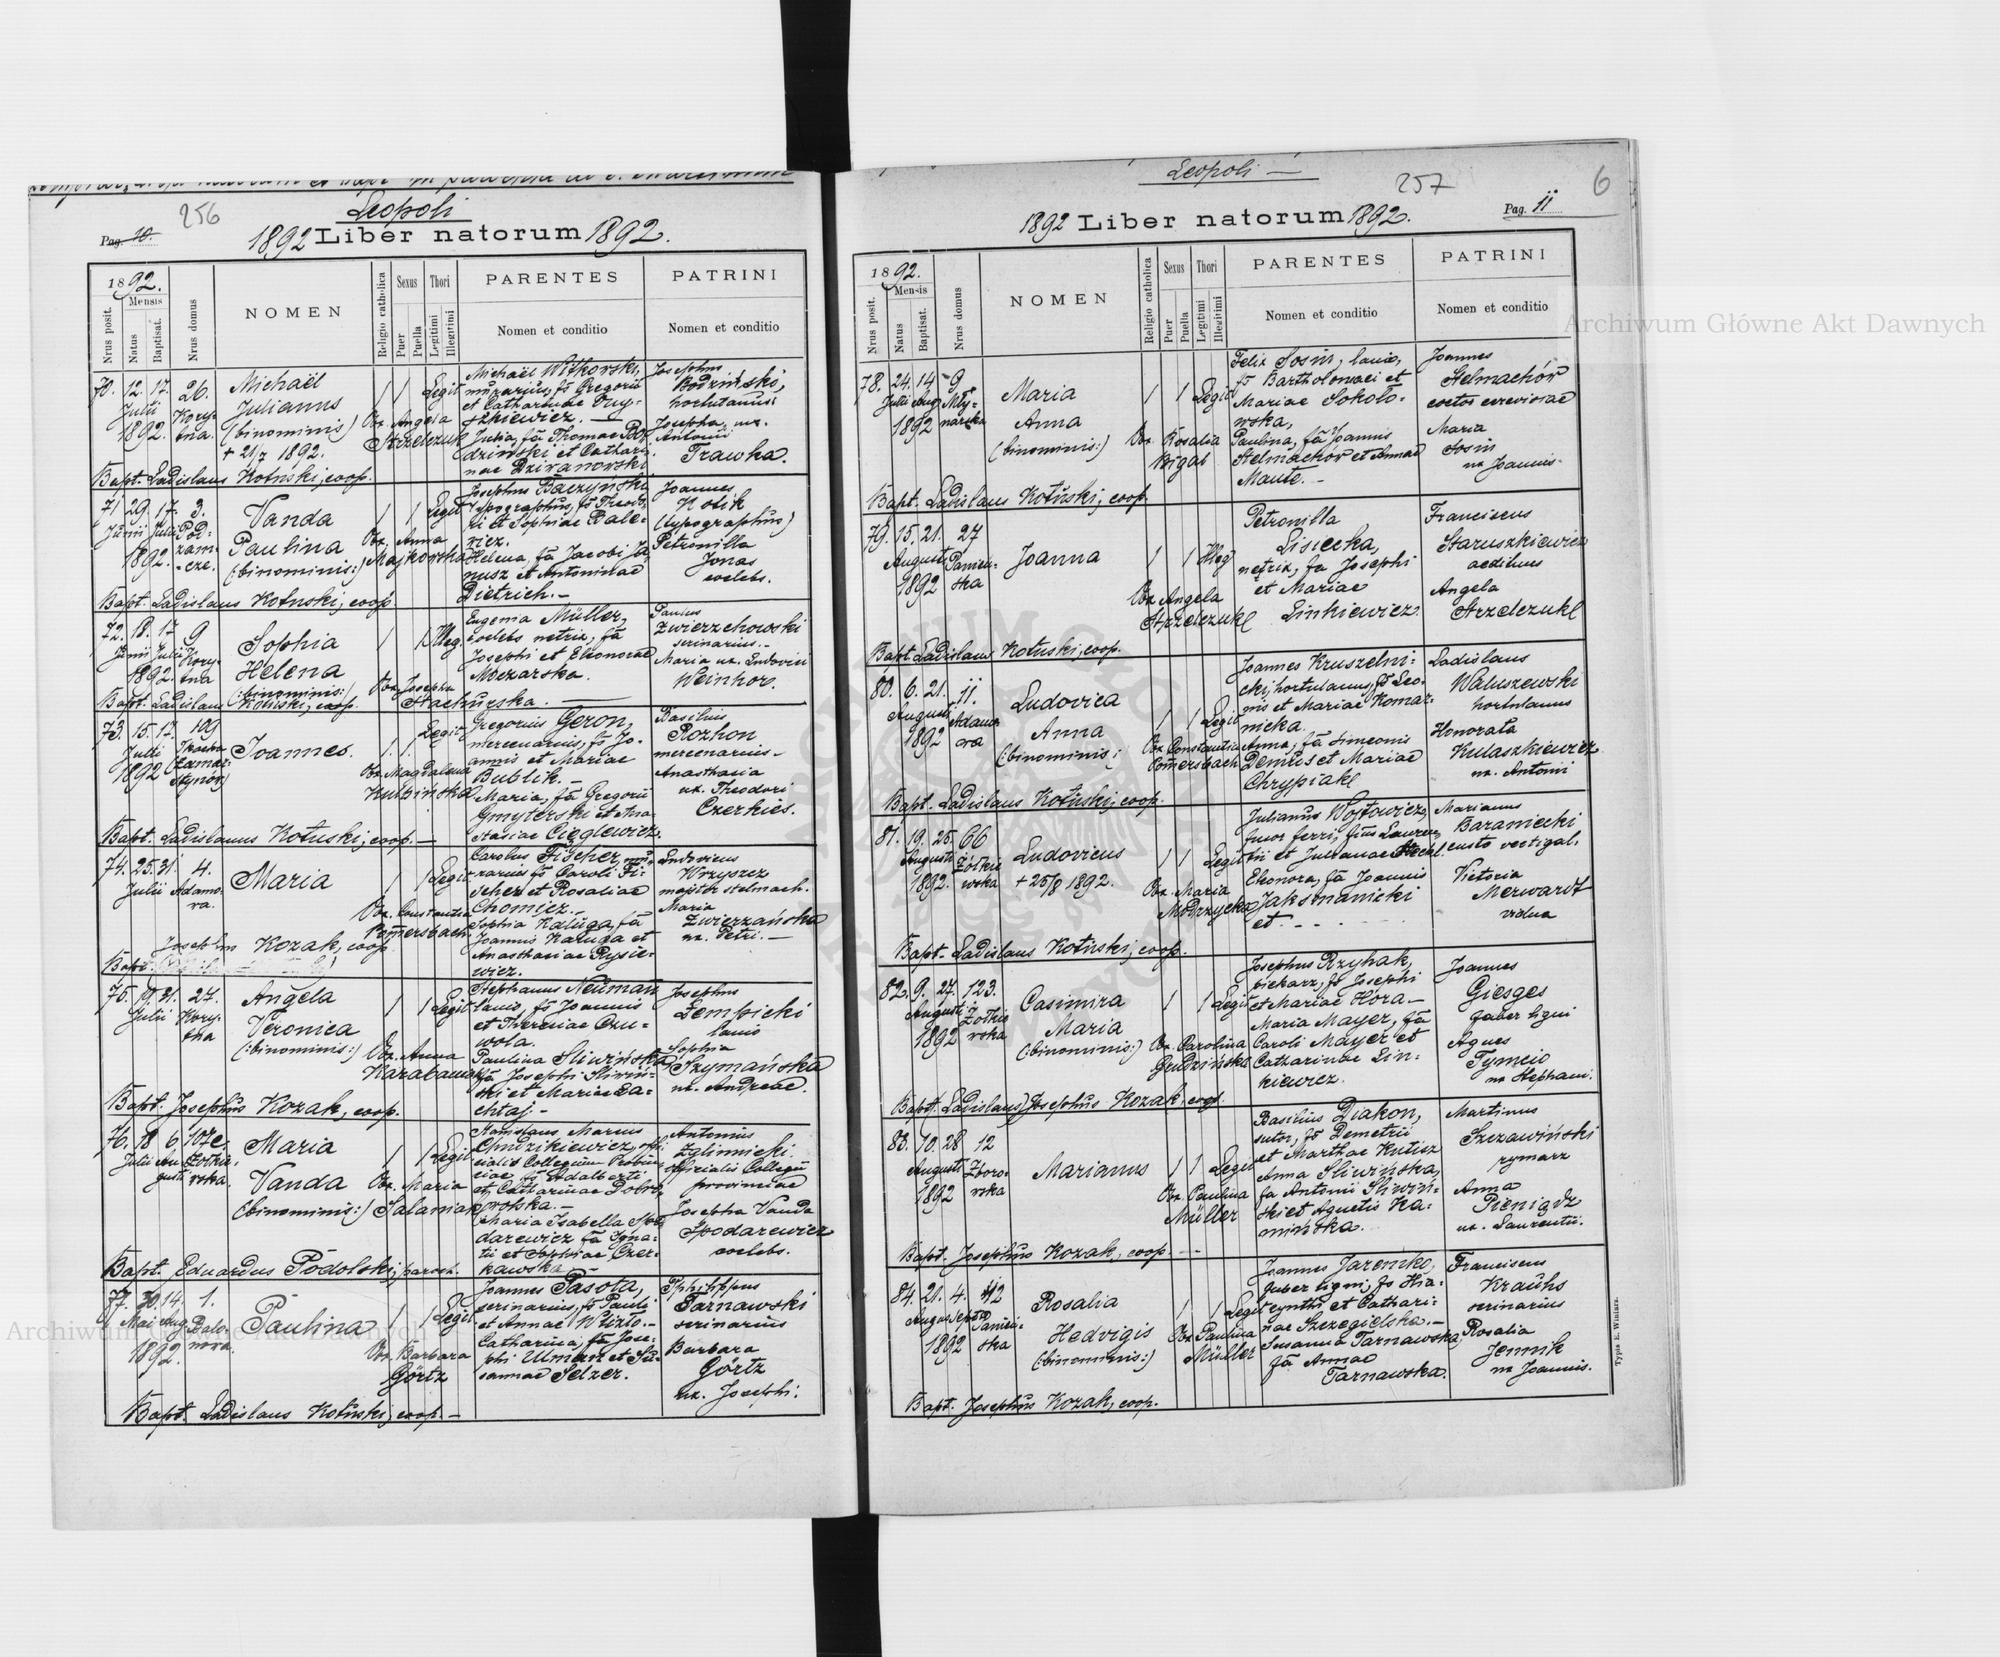 256
Leopoli
Pag. 10.
1892 Liber natorum 1892.
1892.
Nrus posit.
Mensis
Natus
Baptisat.
Nrus domus
NOMEN
Religio catholica
Sexus
Puer
Puella
Thori
Legitimi
Illegitimi
PARENTES
Nomen et conditio
PATRINI
Nomen et conditio
70. 12. 17. 26.
Julii Kory-
1892. tna.
Michaël
Julianus
(binominis)
+ 21/7 1892.
1 1 Legit
Obx. Angela
Strzelczuk
Michaël Witkowski,
murarius, fs Gregorii
et Catharinae
Julia, fa Thomae Bo-
dziński et Cathari-
nae Dziwanowski
Josephus
Bodziński,
hortulanus.
Josepha, ux.
Antonii
Trawka.
Bapt. Ladislaus Kotuski, coop.
71 29. 17. 3.
Junii Julii Pod-
1892. zam-
cze.
Vanda
Paulina
(:binominis:)
1 1 Legit
Obx. Anna
Majkowska
Josephus Baczyński
typographus, fs Theodo-
ri et Sophiae Bale-
wicz.
Helena, fa Jacobi Ja-
nusz et Antoninae
Dietrich.-
Joannes
Kotik
(typographus)
Petronilla
Jonas
coelebs.
Bapt. Ladislaus Kotuski, coop.
72. 18. 17 9
Junii Julii Kory-
1892. tna
Sophia
Helena
(:binominis:)
1 1 Illeg.
Obx. Josepha
Stachurska.
Eugenia Müller,
coelebs netrix, fa
Josephi et Eleonorae
Moczarska.
Paulus
Zwierzchowski
serinarius.-
Maria ux. Ludovici
Weinhor.
Bapt. Ladislaus Kotuski, coop.
73. 15. 17. 109
Julii
1892
Joannes.
1. 1. Legit
Obx. Magdalena
Kulpińska
Gregorius Geron,
mercenarius, fs Jo-
annis et Mariae
Bublik.-
Maria, fa Gregorii
Gmyterski et Ana-
stasiae Cięglewicz.
Basilius
Rozhon
mercenarius-
Anasthasia
ux. Theodori
Czerkies.
Bapt. Ladislaus Kotuski, coop.-
74. 25. 31 4.
Julii Adamo-
ra.
Maria
1 1 Legit
Obx. Constantia
Pomersbach
Carolus Fischer, mu-
rarius fs Caroli Fi-
scher et Rosaliae
Chomicz.-
Sophia Kaługa, fa
Joannis Kaługa et
Anasthasiae Rysie-
wicz.
Ludovicus
Wszyszcz
majster stelmach.
Maria
Zwierzańska
ux. Petri.-
Josephus Kozak, coop.
Bapt.
75. 19. 31. 27.
Julii Kory-
tna
Angela
Veronica
(:binominis:)
1 1 Legit
Obx. Anna
Stephanus Neuman
lanio, fs Joannis
et Theresiae Czu-
wola.
Paulina Sliwińska
fa Josephi Sliwiń-
ski et Mariae Ga-
chtaj-
Josephus
Łempicki
lanio
Sophia
Szymańska
ux. Andreae.
Bapt. Josephus Kozak, coop.
76. 18 6 107c
Julii Au- Żółkie-
gusti wska.
Maria
Vanda
(:binominis:)
1 1 Legit
Obx. Maria
Salamak
Stanislaus Marcus
Chudzikiewicz, offi-
cialis Collegium Provin-
ciae fs Adalberti
et Catharinae Dobro-
wolska.-
Maria Isabella Spo-
darewicz fa Igna-
tii et Sophiae Czer-
kawska
Antonius
Zglinnicki
officialis Collegii
provinciae
Josepha Vanda
Spodarewicz
coelebs.
Bapt. Eduardus Podolski, paroch.
77. 30. 14. 1.
Mai Aug. Balo-
1892. nowa.
Paulina
1 1 Legit
Obx. Barbara
Görtz
Joannes Pasota,
serinarius, fs Pauli
et Annae Wizto.-
Catharina, fa Jose-
phi Ulman et Su-
sannae Selzer.
Philippus
Tarnawski
serinarius
Barbara
Görtz
ux. Josephi.
Bapt. Ladislaus Kotuski, coop.-
Leopoli-
257
6
Pag. 11
1892 Liber natorum 1892.
1892.
Nrus posit.
Mensis
Natus
Baptisat.
Nrus domus
NOMEN
Religio catholica
Sexus
Puer
Puella
Thori
Legitimi
Illegitimi
PARENTES
Nomen et conditio
PATRINI
Nomen et conditio
78. 24. 14 9
Julii Aug. Mły-
1892 narska
Maria
Anna
(:binominis:)
1 1 Legit
Obx. Rosalia
Bigal
Felix Sosin, lanio,
fs Bartholomaei et
Mariae Sokoło-
wska,
Paulina, fa Joannis
Stelmachór et Annae
Maute.-
Joannes
Stelmachór
coctor cerevisiae
Maria
Sosin
ux Joannis-
Bapt. Ladislaus Kotuski, coop.
79. 15. 21. 27
Augusti Panień-
1892 ska
Joanna
1 1 Illeg
Obx Angela
Strzelczuk
Petronilla
Lisiecka,
netrix, fa Josephi
et Mariae
Linkiewicz.
Franciscus
Staruszkiewicz
aedituus
Angela
Strzelczuk
Bapt. Ladislaus Kotuski, coop.
80. 6. 21. 11.
Augusti Adamo-
1892 wa
Ludovica
Anna
(:binominis:)
1 1 Legit
Obx Constantia
Pomersbach
Joannes Kruszelni-
cki, hortulanus, fs Leo-
nis et Mariae Komar-
nicka.
Anna, fa Simeonis
Demius et Mariae
Chrypiak
Ladislaus
Waluszewski
hortulanus
Honorata
Kulaszkiewicz
ux. Antonii
Bapt. Ladislaus Kotuski, coop.
81. 19. 25. 66
Augusti Żółkie-
1892. wska
Ludovicus
+ 25/8 1892.
1 1 Legit
Obx. Maria
Modrzycka
Julianus Wojtowicz,
fusor ferri, filius Lauren-
tii et Julianae
Eleonora, fa Joannis
Jaksmanicki
et - - -
Marianus
Baraniecki
custos vectigal.
Victoria
Merwardt
vidua
Bapt. Ladislaus Kotuski, coop.
82. 9. 27. 123.
Augusti Żółkie-
1892 wska
Casimira
Maria
(:binominis:)
1 1 Legit
Obx. Carolina
Grudzińska
Josephus Rzyhak,
piekarz, fs Josephi
et Mariae Hora-
Maria Mayer, fa
Caroli Mayer et
Catharinae Lin-
kiewicz.
Joannes
Giesges
faber ligni
Agnes
Tymcio
ux Stephani.
Bapt. (Ladislaus) Josephus Kozak, coop.
83. 10. 28 12
Augusti Zboro-
1892 wska
Marianus
1 1 Legit
Obx. Paulina
Müller
Basilius Diakon,
sutor, fs Demetrii
et Marthae Kutisz
Anna Sliwińska,
fa Antonii Sliwiń-
ski et Agnetis Ka-
mińska.
Martinus
Szczawiński
rymarz
Anna
Pieniądz
ux. Laurentii.
Bapt. Josephus Kozak, coop.-
84. 21. 4. 42
August Septb Panień-
1892 ska
Rosalia
Hedvigis
(:binominis:)
1 1 Legit
Obx Paulina
Müller
Joannes Jaremko,
faber ligni, fs Hia-
cynthi et Cathari-
nae Szczegielska.-
Susanna Tarnawska,
fa Annae
Tarnawska.
Franciscus
Krauhs
serinarius
Rosalia
Jennik
ux Joannis.
Bapt. Josephus Kozak, coop.
Typis E. Winiarz.
Archiwum Główne Akt Dawnych
Archiwum Główne Akt Dawnych